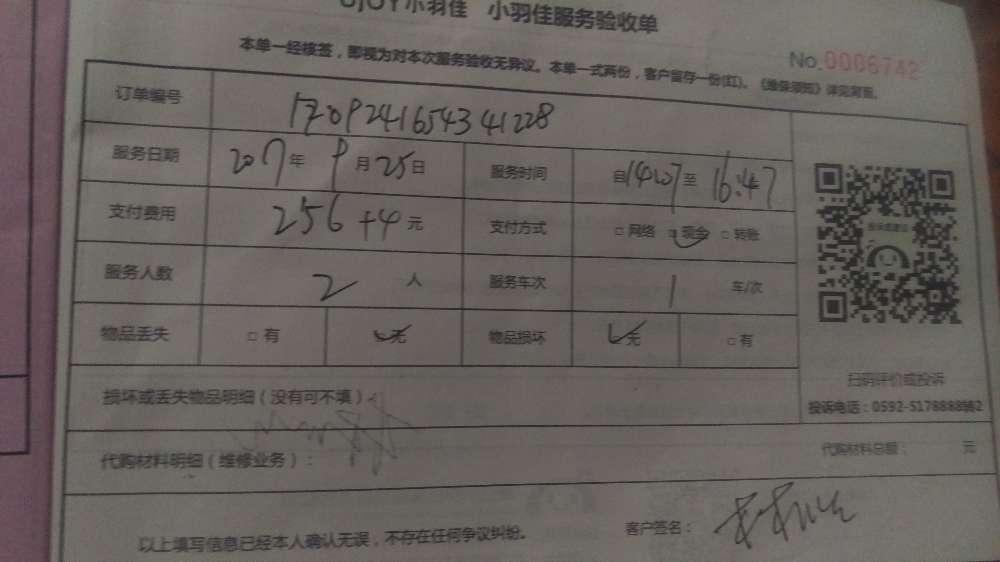 UJOY小羽佳 小羽佳服务验收单
本单一经核签，即视为对本次服务验收无异议。本单一式两份，客户留存一份(红)。《维保须知》详见背面。
No.0006742
订单编号 17092416543 41228
服务日期 2017年 9月25日 服务时间 自14:07至 16:47
支付费用 256+4元 支付方式 □网络 □现金 □转账
服务人数 2 人 服务车次 1 车/次
物品丢失 □有 无 物品损坏 无 □有
投诉或建议
扫码评价或投诉
投诉电话：0592-5178888转2
损坏或丢失物品明细（没有可不填）
代购材料明细（维修业务）： 代购材料总额： 元
以上填写信息已经本人确认无误，不存在任何争议纠纷。 客户签名：